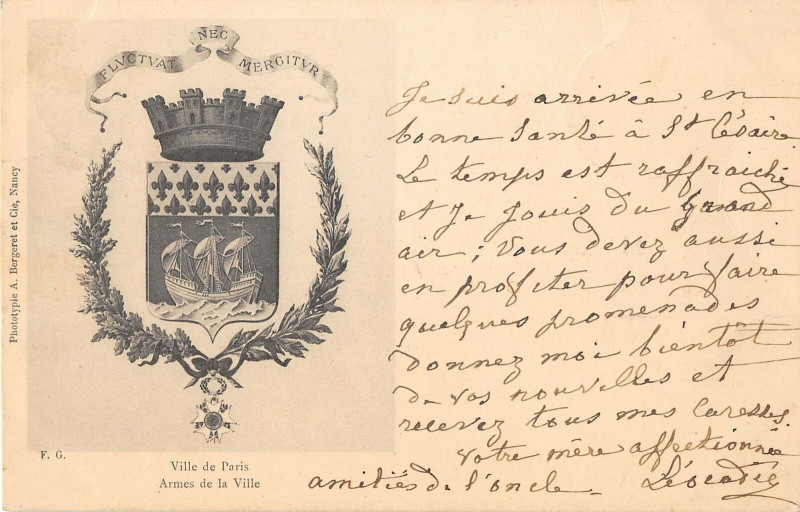 FLVCTVAT NEC MERGITVR
Phototypie A. Bergeret et Cie, Nancy
F. G.
Ville de Paris
Armes de la Ville
Je suis arrivée en
bonne santé à St Césaire.
Le temps est raffraichie
et je jouis du grand
air ; vous devez aussi
en profiter pour faire
quelques promenades
donnez moi bientôt
de vos nouvelles et
recevez tous mes caresses.
votre mère affectionnée
amitiés de l'oncle - Léocadie